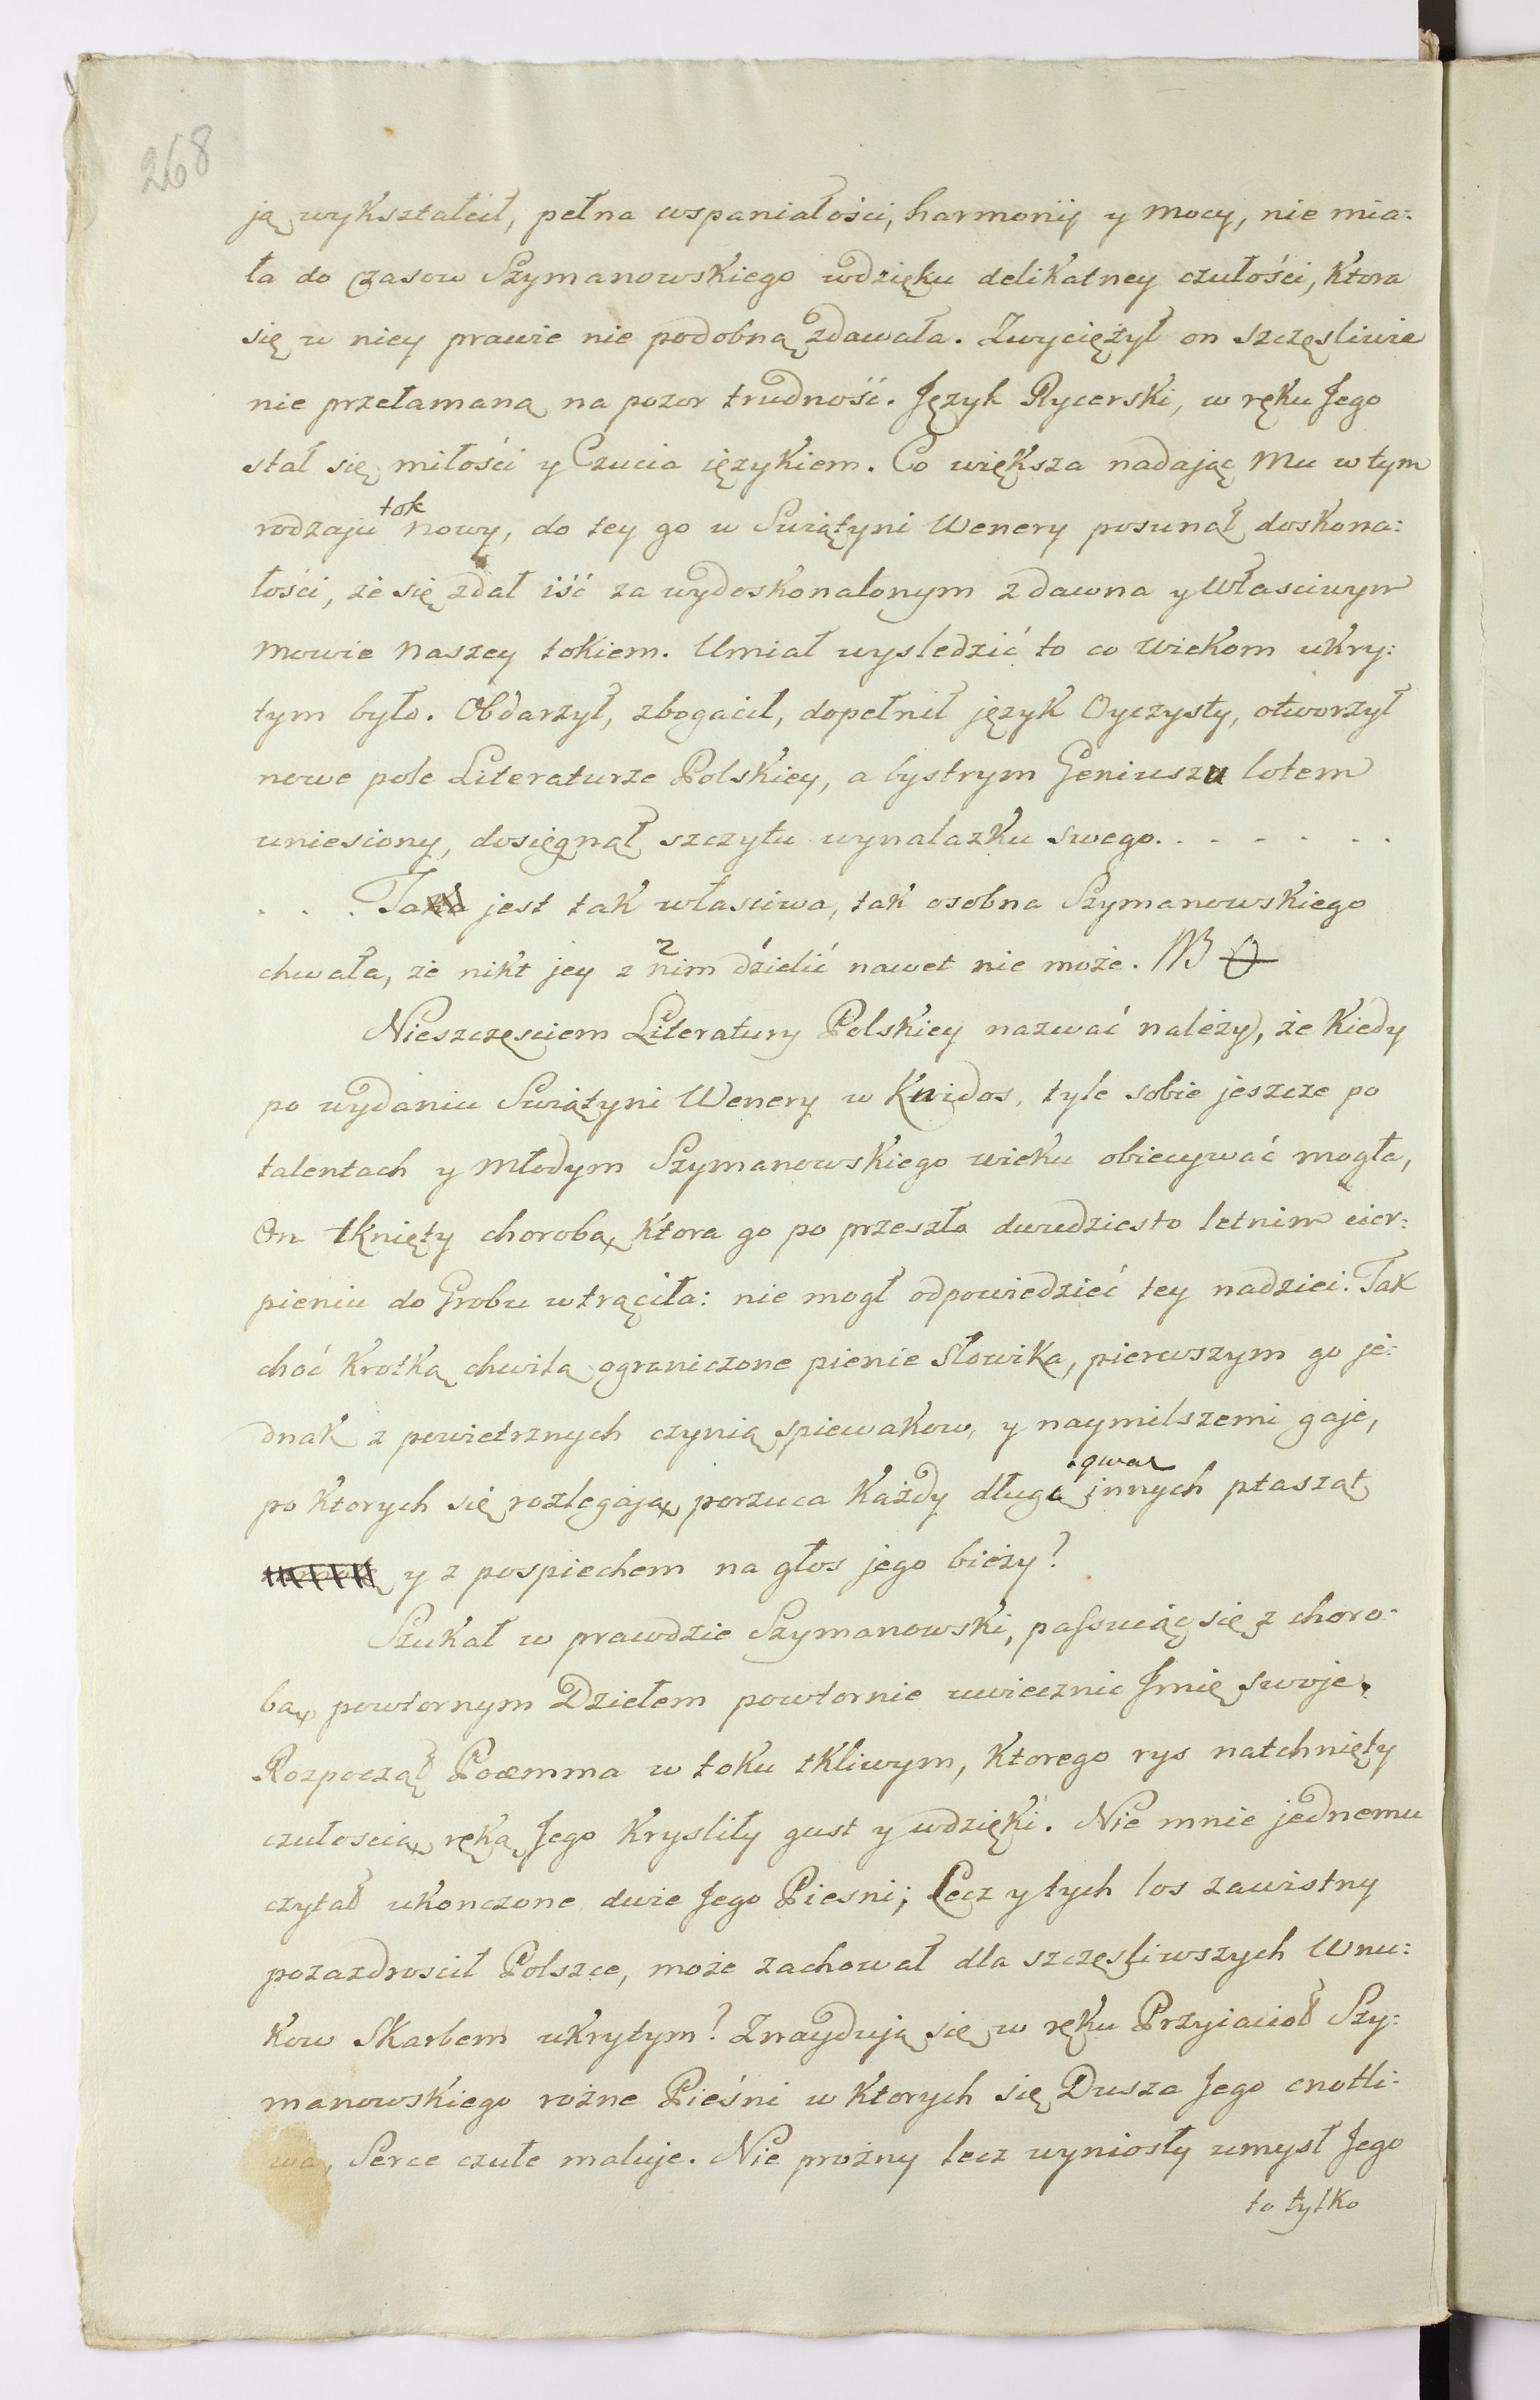 268
ją wykształcił, pełna wspaniałości, harmonij y mocy, nie mia:
ła do czasow Szymanowskiego wdzięku delikatney czułości, ktora
się w niey prawie nie podobną zdawała. Zwyciężył on szczęsliwie
nie przełamaną na pozor trudność. Język Rycerski, w ręku Jego
stał się miłości y Czucia ięzykiem. Co większa nadając Mu w tym
tok
rodzaju nowy, do tey go w Swiątyni Wenery posunął doskona:
łości, że się zdał iść za wydoskonalonym z dawna y Własciwym
mowie naszey tokiem. Umiał wysledzić to co Wiekom ukry:
tym było. Obdarzył, zbogacił, dopełnił język Oyczysty, otworzył
nowe pole Literaturze Polskiey, a bystrym Geniuszu lotem
uniesiony, dosięgnął szczytu wynalazku swego. . - - - . .
. . . Ta jest tak własciwa, tak osobna Szymanowskiego
chwała, że nikt jey z nim dzielić nawet nie może.
Nieszczęsciem Literatury Polskiey nazwać należy, że kiedy
po wydaniu Swiątyni Wenery w Knidos, tyle sobie jeszcze po
talentach y młodym Szymanowskiego wieku obiecywać mogła,
On tknięty chorobą, ktora go po przeszło dwudziesto letnim cier:
pieniu do Grobu wtrąciła: nie mogł odpowiedzieć tey nadziei. Tak
choć krotką chwilą ograniczone pienie Słowika, pierwszym go je:
dnak z powietrznych czynią spiewakow, y naymilszemi gaje,
gwar
po ktorych się rozlegają, porzuca każdy długi innych ptasząt
y z pospiechem na głos jego bieży?
Szukał w prawdzie Szymanowski, passuiąc się z choro:
bą, powtornym Dziełem powtornie uwiecznić Jmię swoje.
Rozpoczął Poæmma w toku tkliwym, ktorego rys natchnięty
czułoscią, ręką Jego krysliły gust y wdzięki. Nie mnie jednemu
czytał ukonczone dwie Jego Piesni; Lecz y tych los zawistny
pozazdroscił Polszce, może zachował dla szczęsliwszych Wnu:
kow Skarbem ukrytym? Znayduią się w ręku Przyiacioł Szy:
manowskiego rożne Pieśni w ktorych się Dusza Jego cnotli:
wa, Serce czułe maluje. Nie prożny lecz wyniosły umysł Jego
to tylko